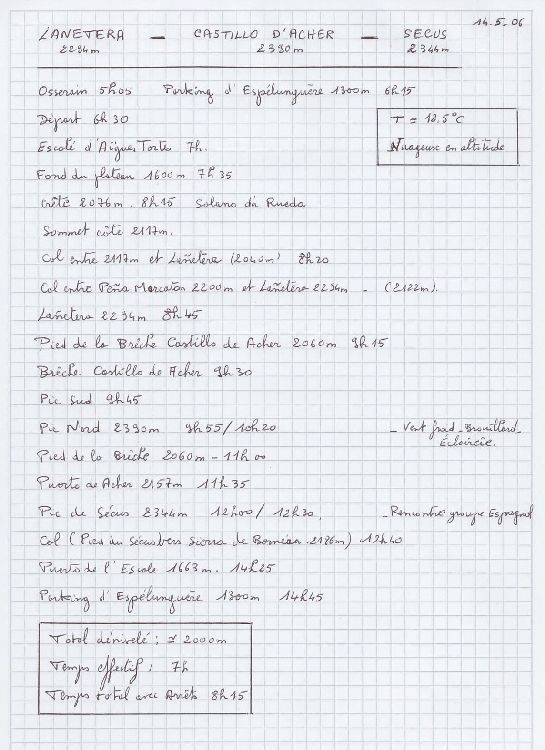 14.5.06
LANETERA — CASTILLO D'ACHER — SECUS
2294m 2390m 2344m
Osserain 5h05 Parking d'Espélunguère 1300m 6h15
Départ 6h30
T = 12.5°C
Nuageux en altitude
Escalé d'Aigues Torte 7h.
Fond du plateau 1600m 7h35
Crête 2076m. 8h15 Solano da Rueda
Sommet côté 2117m.
Col entre 2117m et Lañetera (2040m) 8h20
Col entre Peña Marcaton 2200m et Lañetéra 2294m - (2122m).
Lañetera 2294m 8h45
Pied de la Brêche Castillo de Acher 2060m 9h15
Brêche Castillo de Acher 9h30
Pic Sud 9h45
Pic Nord 2390m 9h55/10h20 - Vent froid - Brouillard -
Éclaircie.
Pied de la Brêche 2060m - 11h00
Puerto de Acher 2157m 11h35
Pic de Sécus 2344m 12h00/12h30. - Rencontre groupe Espagnol
Col (Pied du Sécus vers Sierra de Bernera. 2186m) 12h40
Puerto de l'Escale 1663m. 14h25
Parking d'Espélunguère 1300m 14h45
Total dénivelé : ≃ 2000m
Temps effectif : 7h
Temps total avec Arrêts 8h15